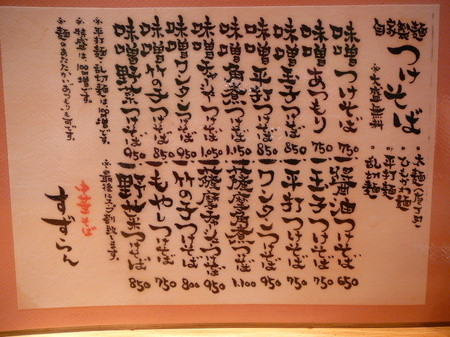 自家製麺
つけそば
※大盛無料
・太麺
・ひもかわ麺
・平打麺
・乱切麺
味噌つけそば 750
味噌あつもり 750
味噌玉子つけそば 850
味噌平打つけそば 850
味噌角煮つけそば 1,150
味噌チャシュつけそば 1,050
味噌ワンタンつけそば 950
味噌竹の子つけそば 850
味噌野菜つけそば 950
醤油つけそば 650
玉子つけそば 750
平打つけそば 750
ワンタンつけそば 950
薩摩角煮つけそば 1,100
薩摩チャシュつけそば 950
竹の子つけそば 800
もやしつけそば 750
野菜つけそば 850
中華そば
すずらん